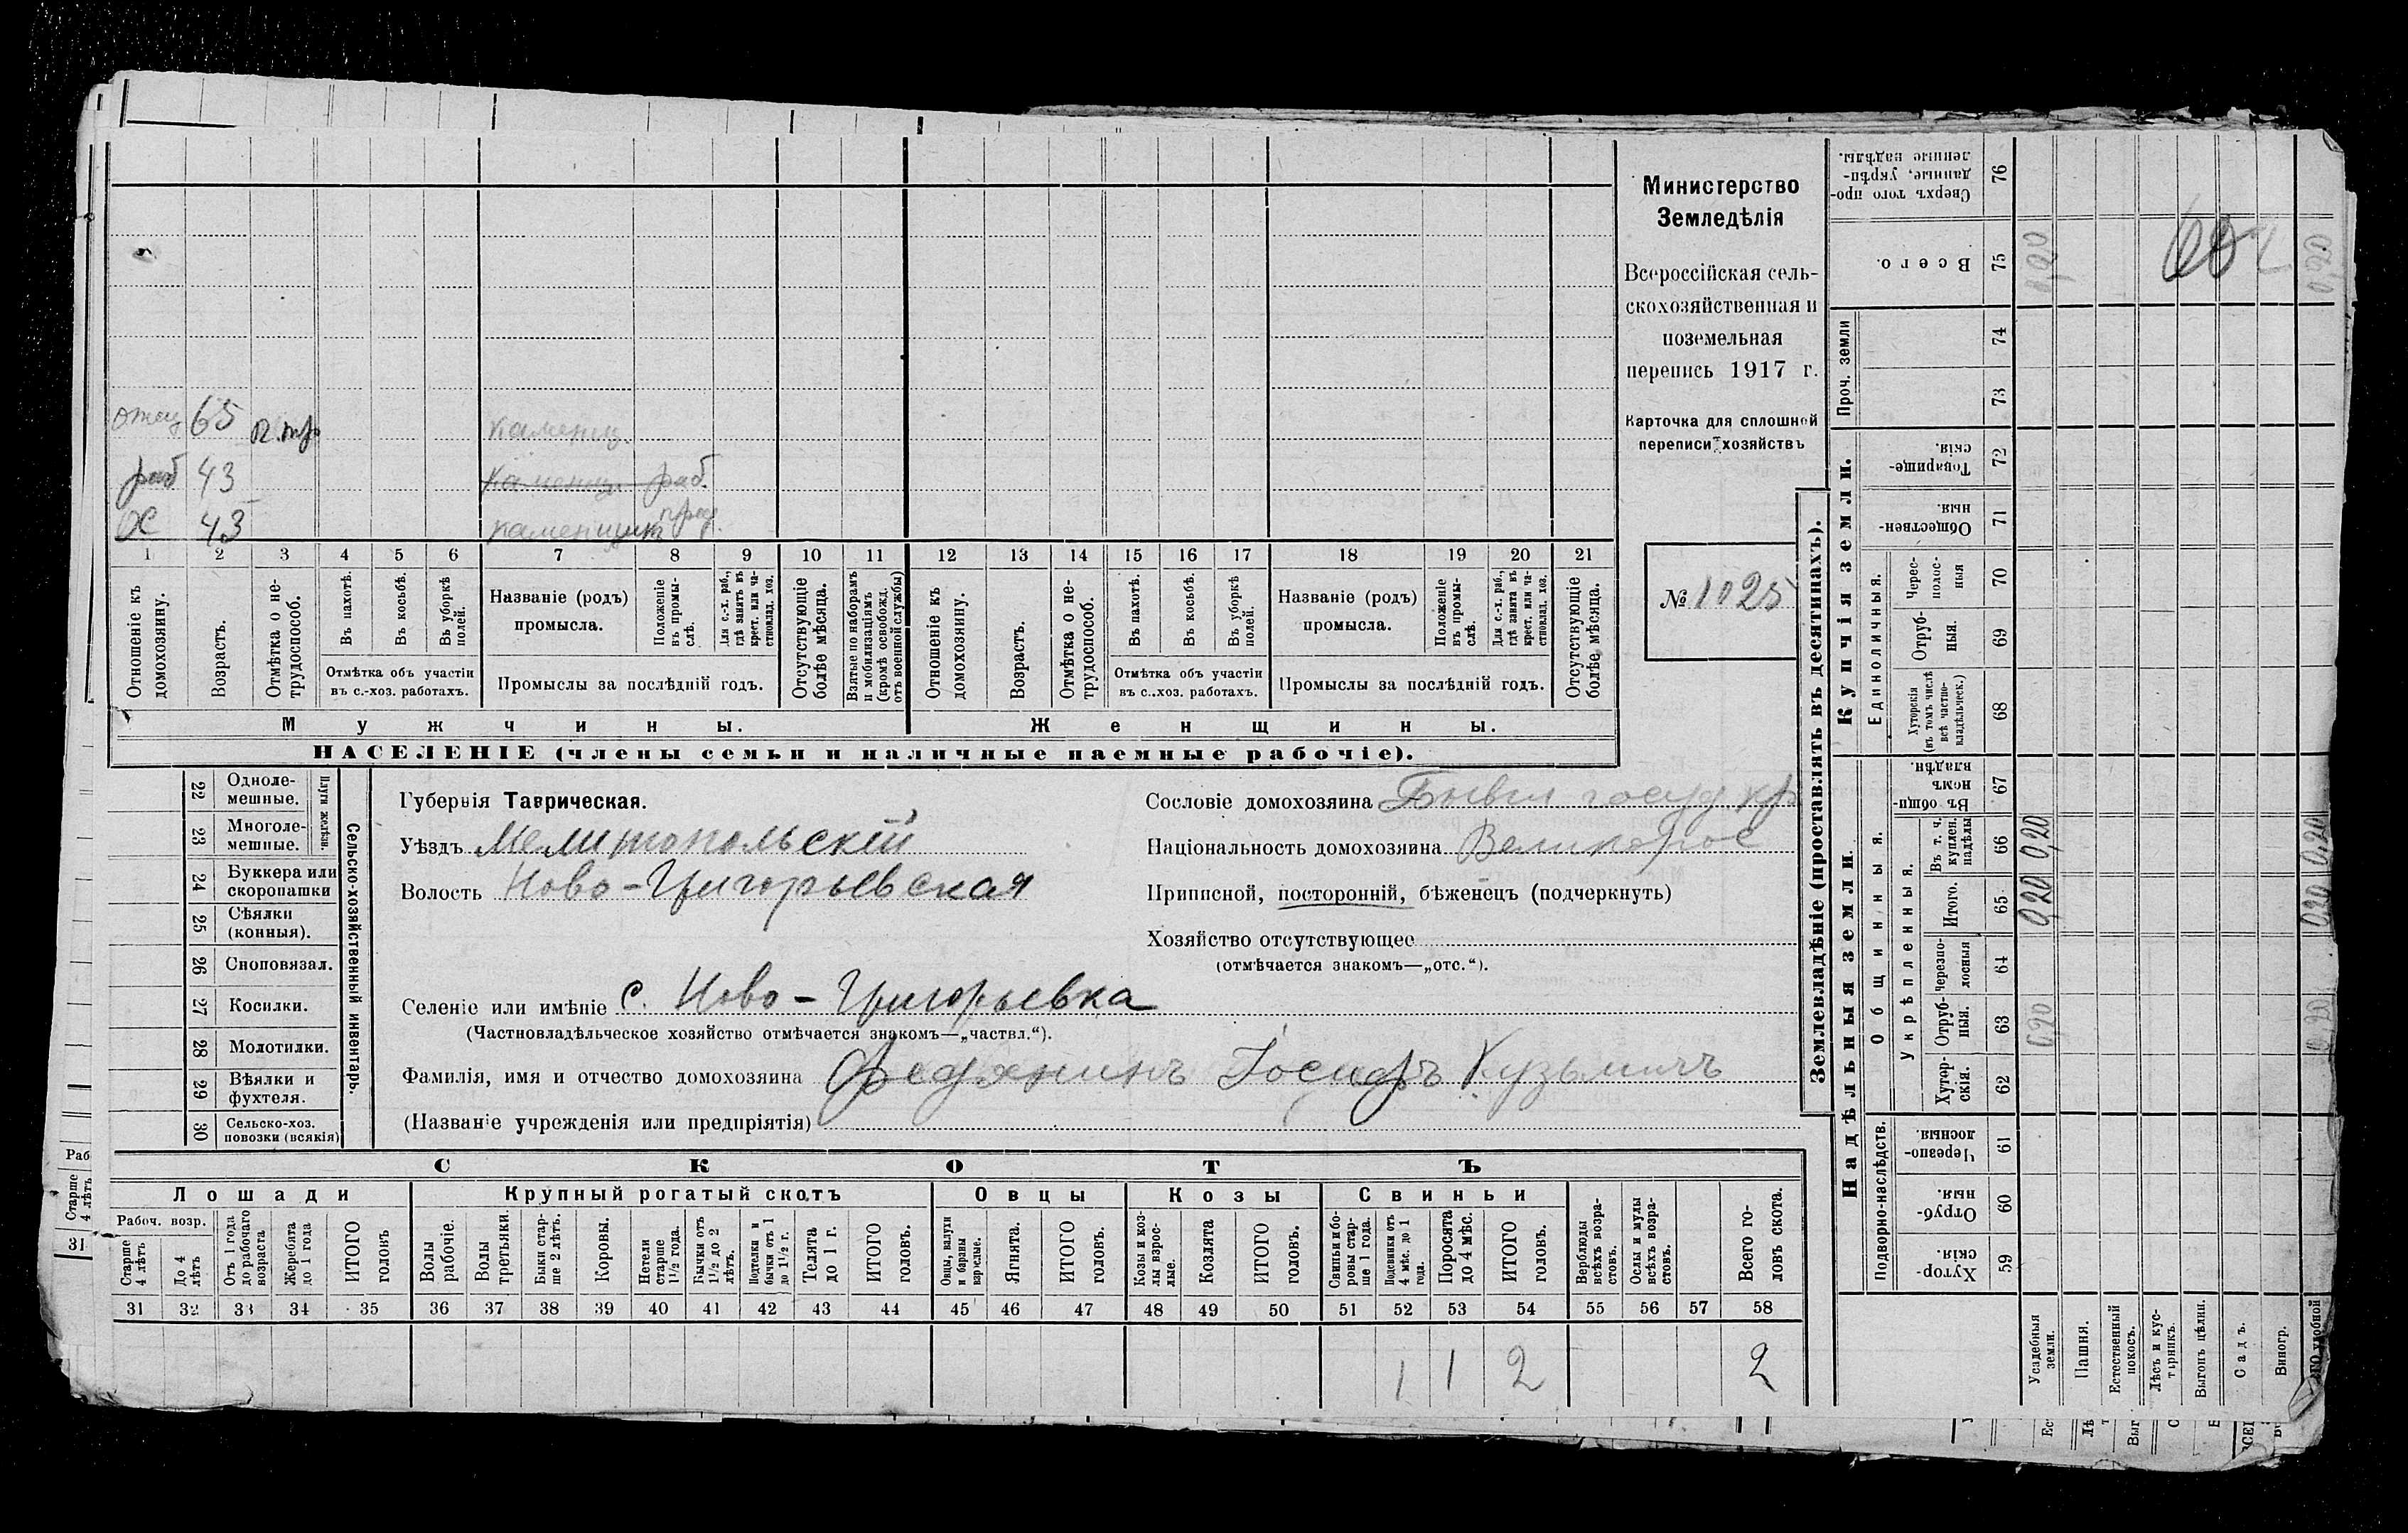 отец 65 п. тр. каменщ.
раб 43 каменщ. раб.
ос 43 каменщик
1 2 3 4 5 6 7 8 9 10 11 12 13 14 15 16 17 18 19 20 21
Отношеніе къ домохозяину.
Возрастъ.
Отмѣтка о нетрудоспособ.
Въ пахотѣ.
Въ косьбѣ.
Въ уборкѣ полей.
Отмѣтка объ участіи
въ с.-хоз. работахъ.
Названіе (родъ)
промысла.
Положеніе въ промыслѣ.
Для с.-х. раб., гдѣ занятъ въ крест. или частновлад. хоз.
Промыслы за послѣдній годъ.
Отсутствующіе болѣе мѣсяца.
Взятые по наборамъ и мобилизаціямъ (кромѣ освобожд. отъ военной службы)
Отношеніе къ домохозяину.
Возрастъ.
Отмѣтка о нетрудоспособ.
Въ пахотѣ.
Въ косьбѣ.
Въ уборкѣ полей.
Отмѣтка объ участіи
въ с..хоз. работахъ.
Названіе (родъ)
промысла.
Положеніе въ промыслѣ.
Для с.-х. раб., гдѣ занята въ крест. или частновлад. хоз.
Промыслы за послѣдній годъ.
Отсутствующіе болѣе мѣсяца.
Мужчины. Женщины.
НАСЕЛЕНІЕ (члены семьи и наличные наемные рабочіе).
Министерство
Земледѣлія
Всероссійская сель-
скохозяйственная и
поземельная
перепись 1917 г.
Карточка для сплошной
переписи хозяйствъ
№ 1025
22 Одноле-
мешные.
23 Многоле-
мешные.
Плуги желѣзн.
24 Буккера или
скоропашки
25 Сѣялки
(конныя).
26 Сноповязал.
27 Косилки.
28 Молотилки.
29 Вѣялки и
фухтеля.
30 Сельско-хоз.
повозки (всякія)
Сельско-хозяйственный инвентарь.
Губернія Таврическая.
Уѣздъ Мелитопольскій
Волость Ново-Григорьевская
Сословіе домохозяина Бывш госуд кр
Національность домохозяина Великорос
Приписной, посторонній, бѣженецъ (подчеркнуть)
Хозяйство отсутствующее
(отмѣчается знакомъ—„отс.“).
Селеніе или имѣніе с. Ново-Григорьевка
(Частновладѣльческое хозяйство отмѣчается знакомъ—„частвл.“).
Фамилія, имя и отчество домохозяина Федянинъ Іосифъ Кузьмичъ
(Названіе учрежденія или предпріятія)
СКОТЪ
Лошади Крупный рогатый скотъ Овцы Козы Свиньи
Рабоч. возр.
Старше 4 лѣтъ
До 4 лѣтъ
Отъ 1 года до рабочаго возраста
Жеребята до 1 года
ИТОГО головъ
Волы рабочіе.
Волы третьяки.
Быки старше 2 лѣтъ.
Коровы.
Нетели старше 1½ года.
Бычки отъ 1½ до 2 лѣтъ.
Подтелки и бычки отъ 1 до 1½ г.
Телята до 1 г.
ИТОГО головъ.
Овцы, валухи и бараны взрослые.
Ягнята.
ИТОГО головъ.
Козы и козлы взрослые.
Козлята
ИТОГО головъ.
Свиньи боровы старше 1 года.
Подсвинки отъ 4 мѣс. до 1 года.
Поросята до 4 мѣс.
ИТОГО головъ.
Верблюды всѣхъ возрастовъ.
Ослы и мулы всѣхъ возрастовъ.
Всего головъ скота.
31 32 33 34 35 36 37 38 39 40 41 42 43 44 45 46 47 48 49 50 51 52 53 54 55 56 57 58
1 1 2 2
Раб
Старше 4 лѣтъ
31
Землевладѣніе (проставлять въ десятинахъ).
Купчія земли.
Надѣльныя земли
Сверхъ того проданные, укрѣпленные надѣлы. 76
Всего. 75 0,20 0,20
Проч. земли 74 73
Товарищескія 72
Общественныя 71
Единоличныя.
Чересполосныя 70
Отрубныя. 69
Хуторскія (въ томъ числѣ всѣ частновладѣльческ.) 68
Общинныя.
Въ общиномъ владѣн. 67
Укрѣпленныя.
Въ т. ч. куплен. надѣлы 66 0,20 0,20
Итого. 65 0,20 0,20
Черезполосныя 64
Отрубныя. 63 0,20 0,20
Хуторскія. 62
Подворно-наслѣдств.
Черезполосныя 61
Отрубныя. 60
Хуторскія. 59
Усадебныя земли.
Пашня.
Естественный покосъ.
Лѣсъ и кустарникъ.
Выгонъ цѣлин.
Садъ.
Виногр.